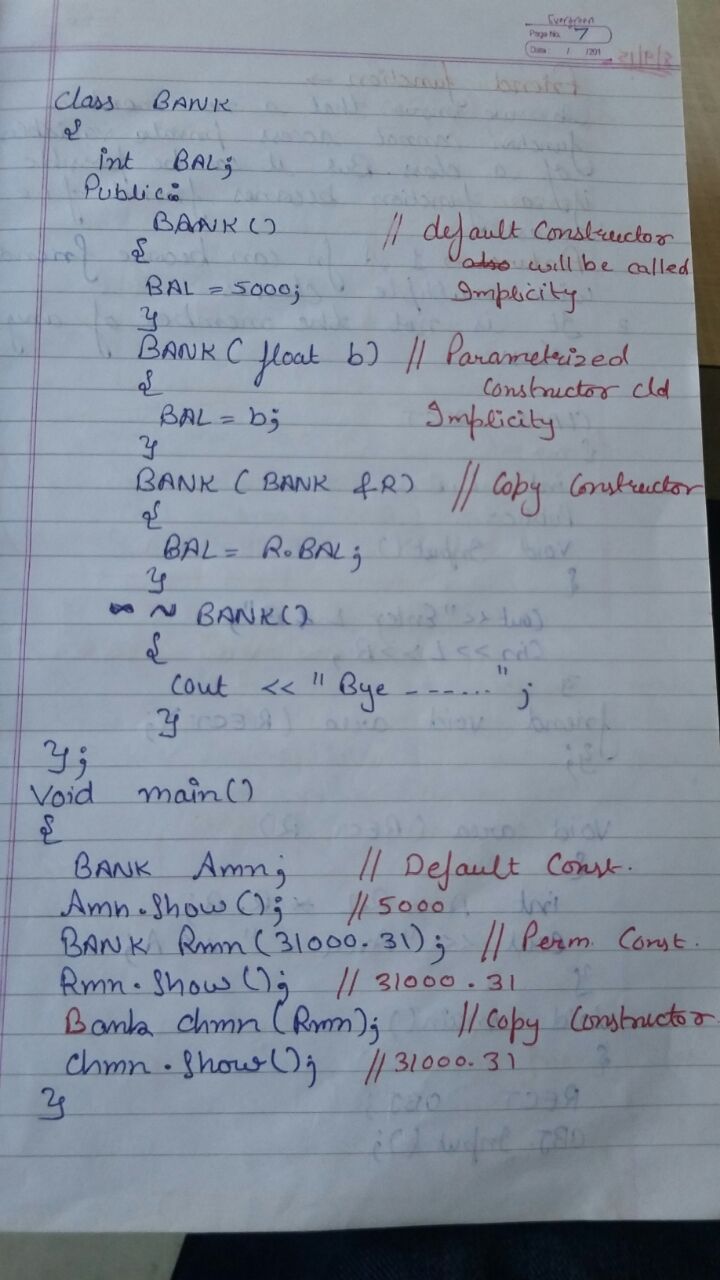 Evergreen
Page No. 7
Date / /201
class BANK
{
int BAL;
Public:
BANK() // default Constructor
also will be called
BAL = 5000; Implicity
}
BANK ( float b) // Parametrized
{ Constructor cld
BAL = b; Implicity
}
BANK ( BANK &R) // Copy Constructor
{
BAL = R.BAL;
}
~ BANK()
{
Cout << " Bye - - - ...... " ;
}
};
Void main()
{
BANK Amn; // Default Const.
Amn.Show(); // 5000
BANK Rmn(31000.31); // Perm. Const.
Rmn.Show(); // 31000.31
Bank Chmn (Rmn); // Copy Constructor
Chmn.Show(); // 31000.31
}